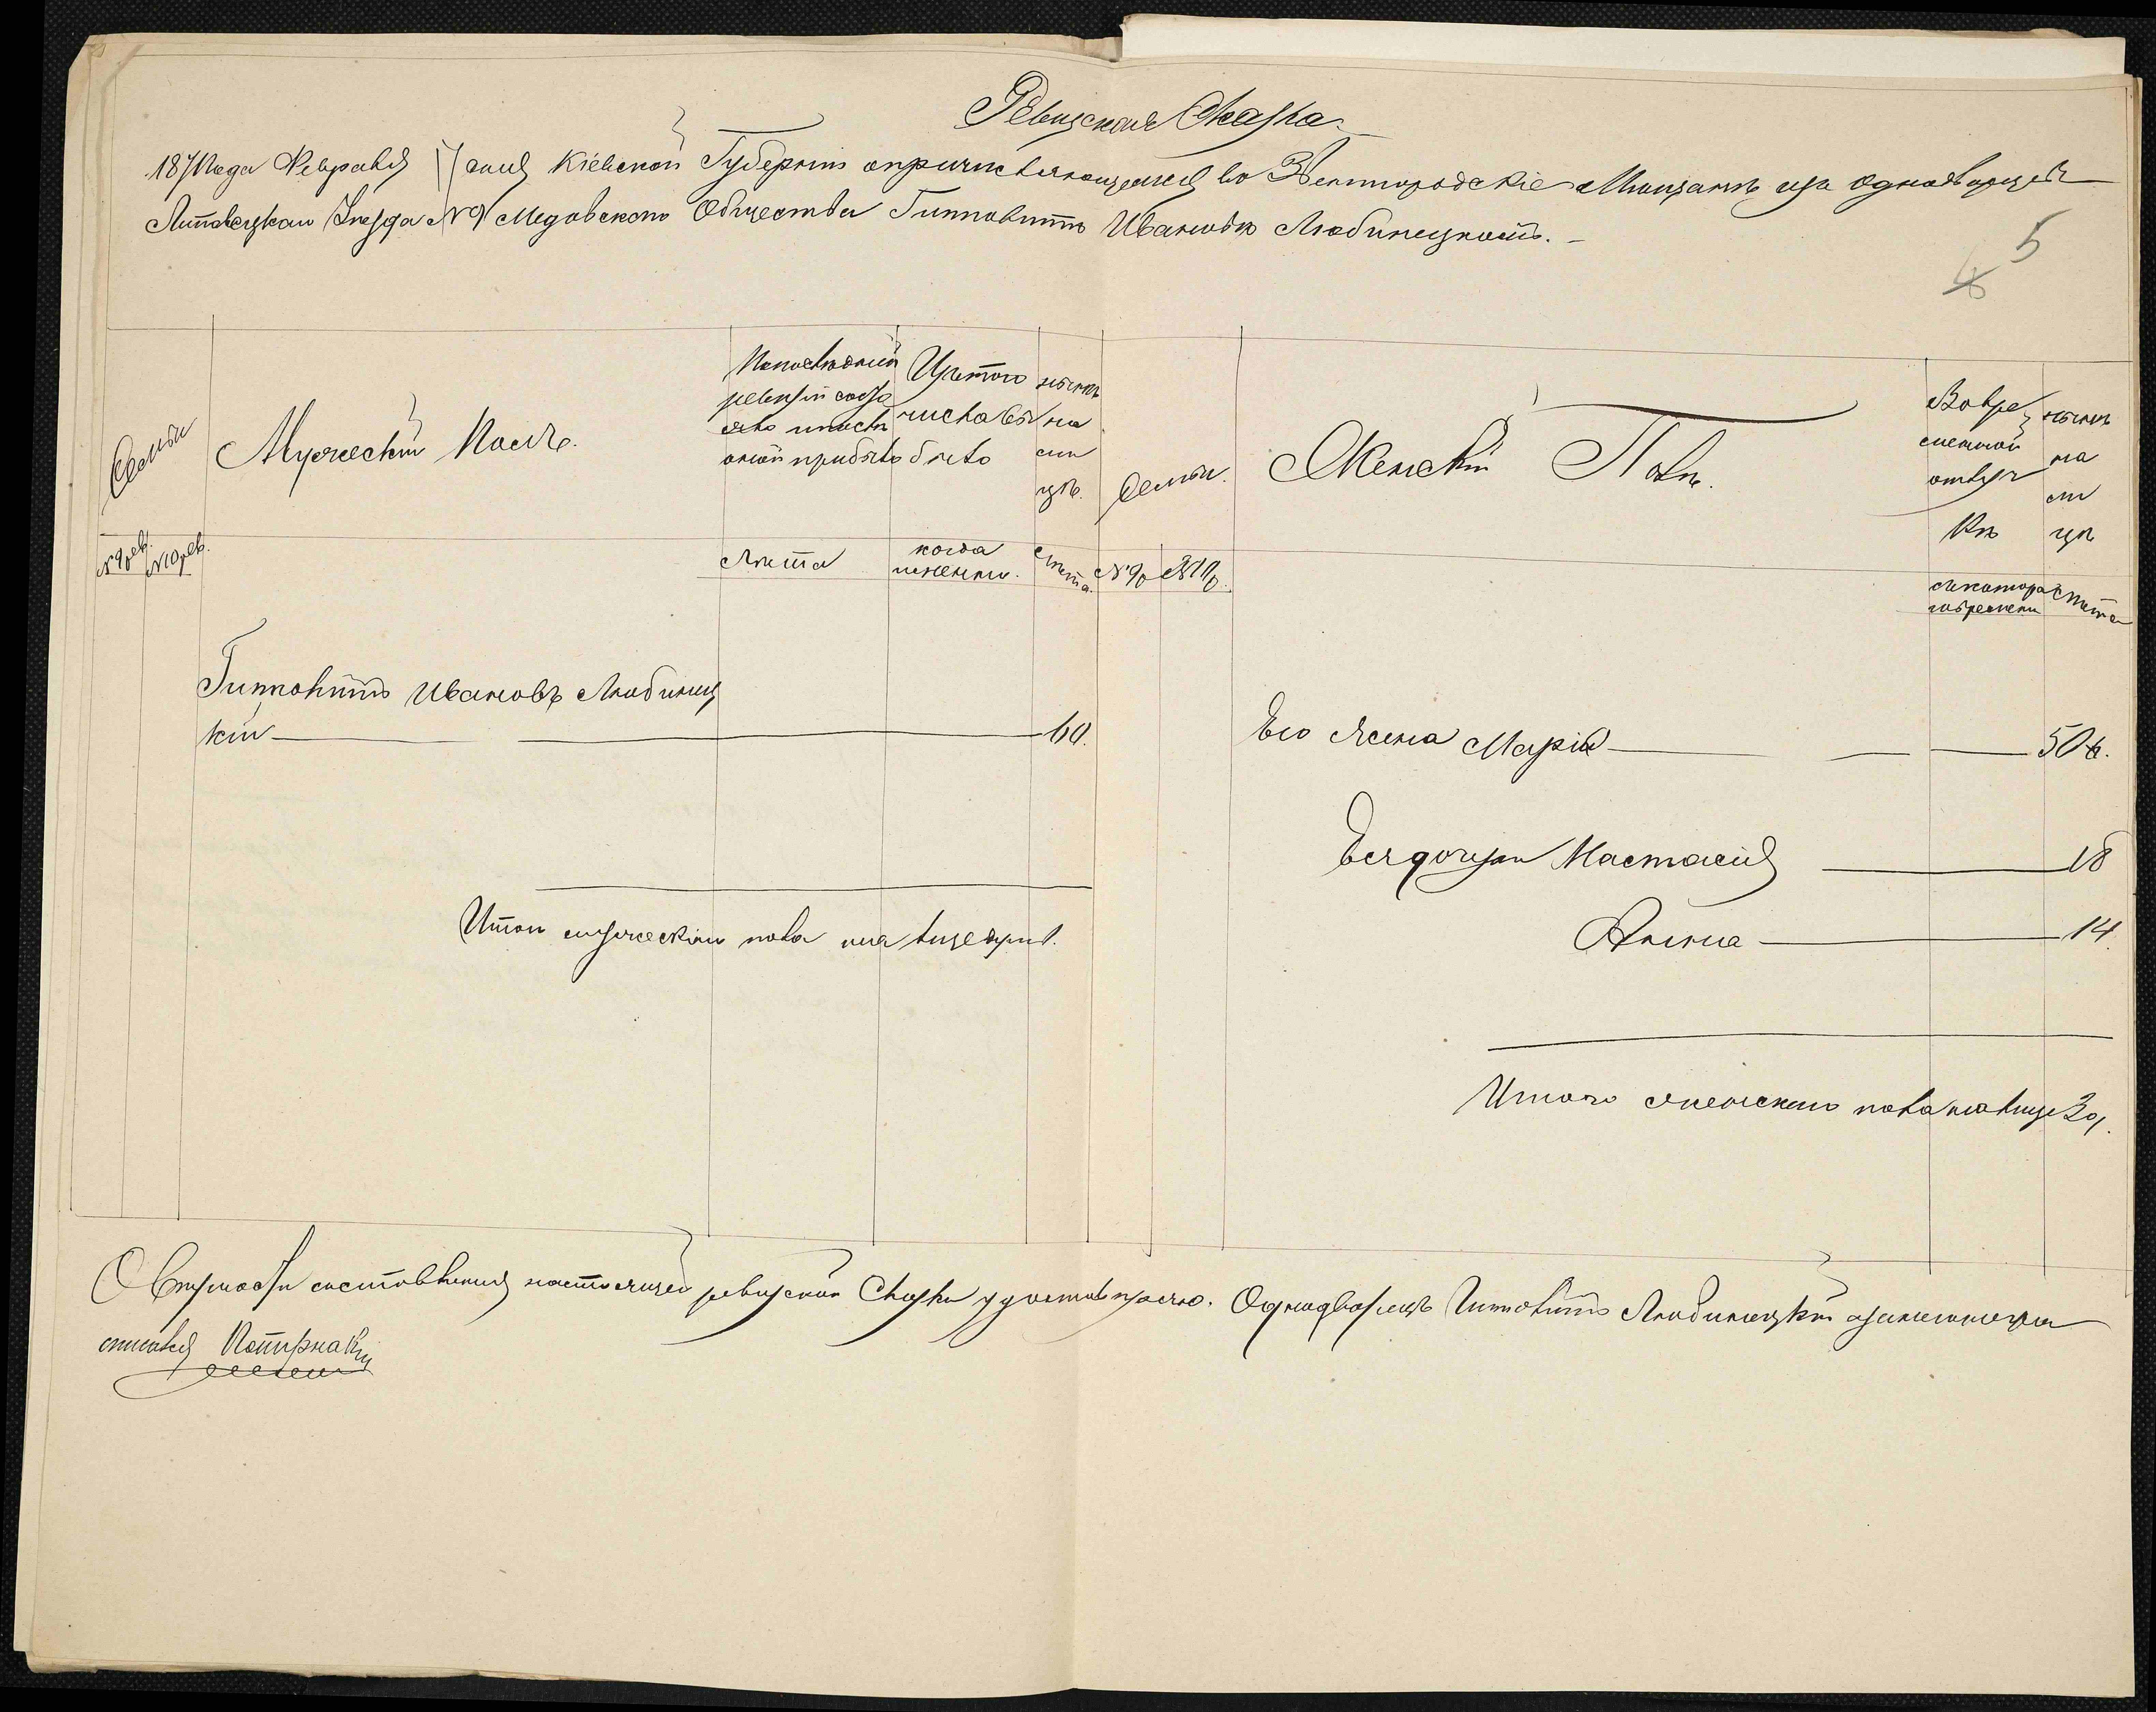 Ревизская Сказка
187 года Февраля дня Кіевской Губерніи о причисляющемся во Звенигородскіе Мещане изъ однодворцевъ
Липовецкаго Уезда № 9 Медовского Общества Гипполитъ Ивановъ Любинецкомъ.
5
4
Семьи
Мужеский Полъ.
По последней
ревизіи состо
яло и после
оной прибыло
Изъ того
числа вы
было
ныне
на
ли
це.
Семьи.
Женскій Полъ.
Во вре
менной
отлуч
ке
ныне
на
ли
це
№ 9 рев. № 10 рев.
Лета
когда
именно.
Лета.
№ 9 р № 10 р.
съ котора
го времени
Лета
Гипполитъ Ивановъ Любинец
кій 60.
Его жена Марія 50
Ея дочери Настасія 18
Анна 14.
Итого мужескаго пола на лице 1.
Итого женского пола на лице 3
О верности составленія настоящей ревизской Сказки удостоверяю. Однодворецъ Гипполитъ Любинецкій